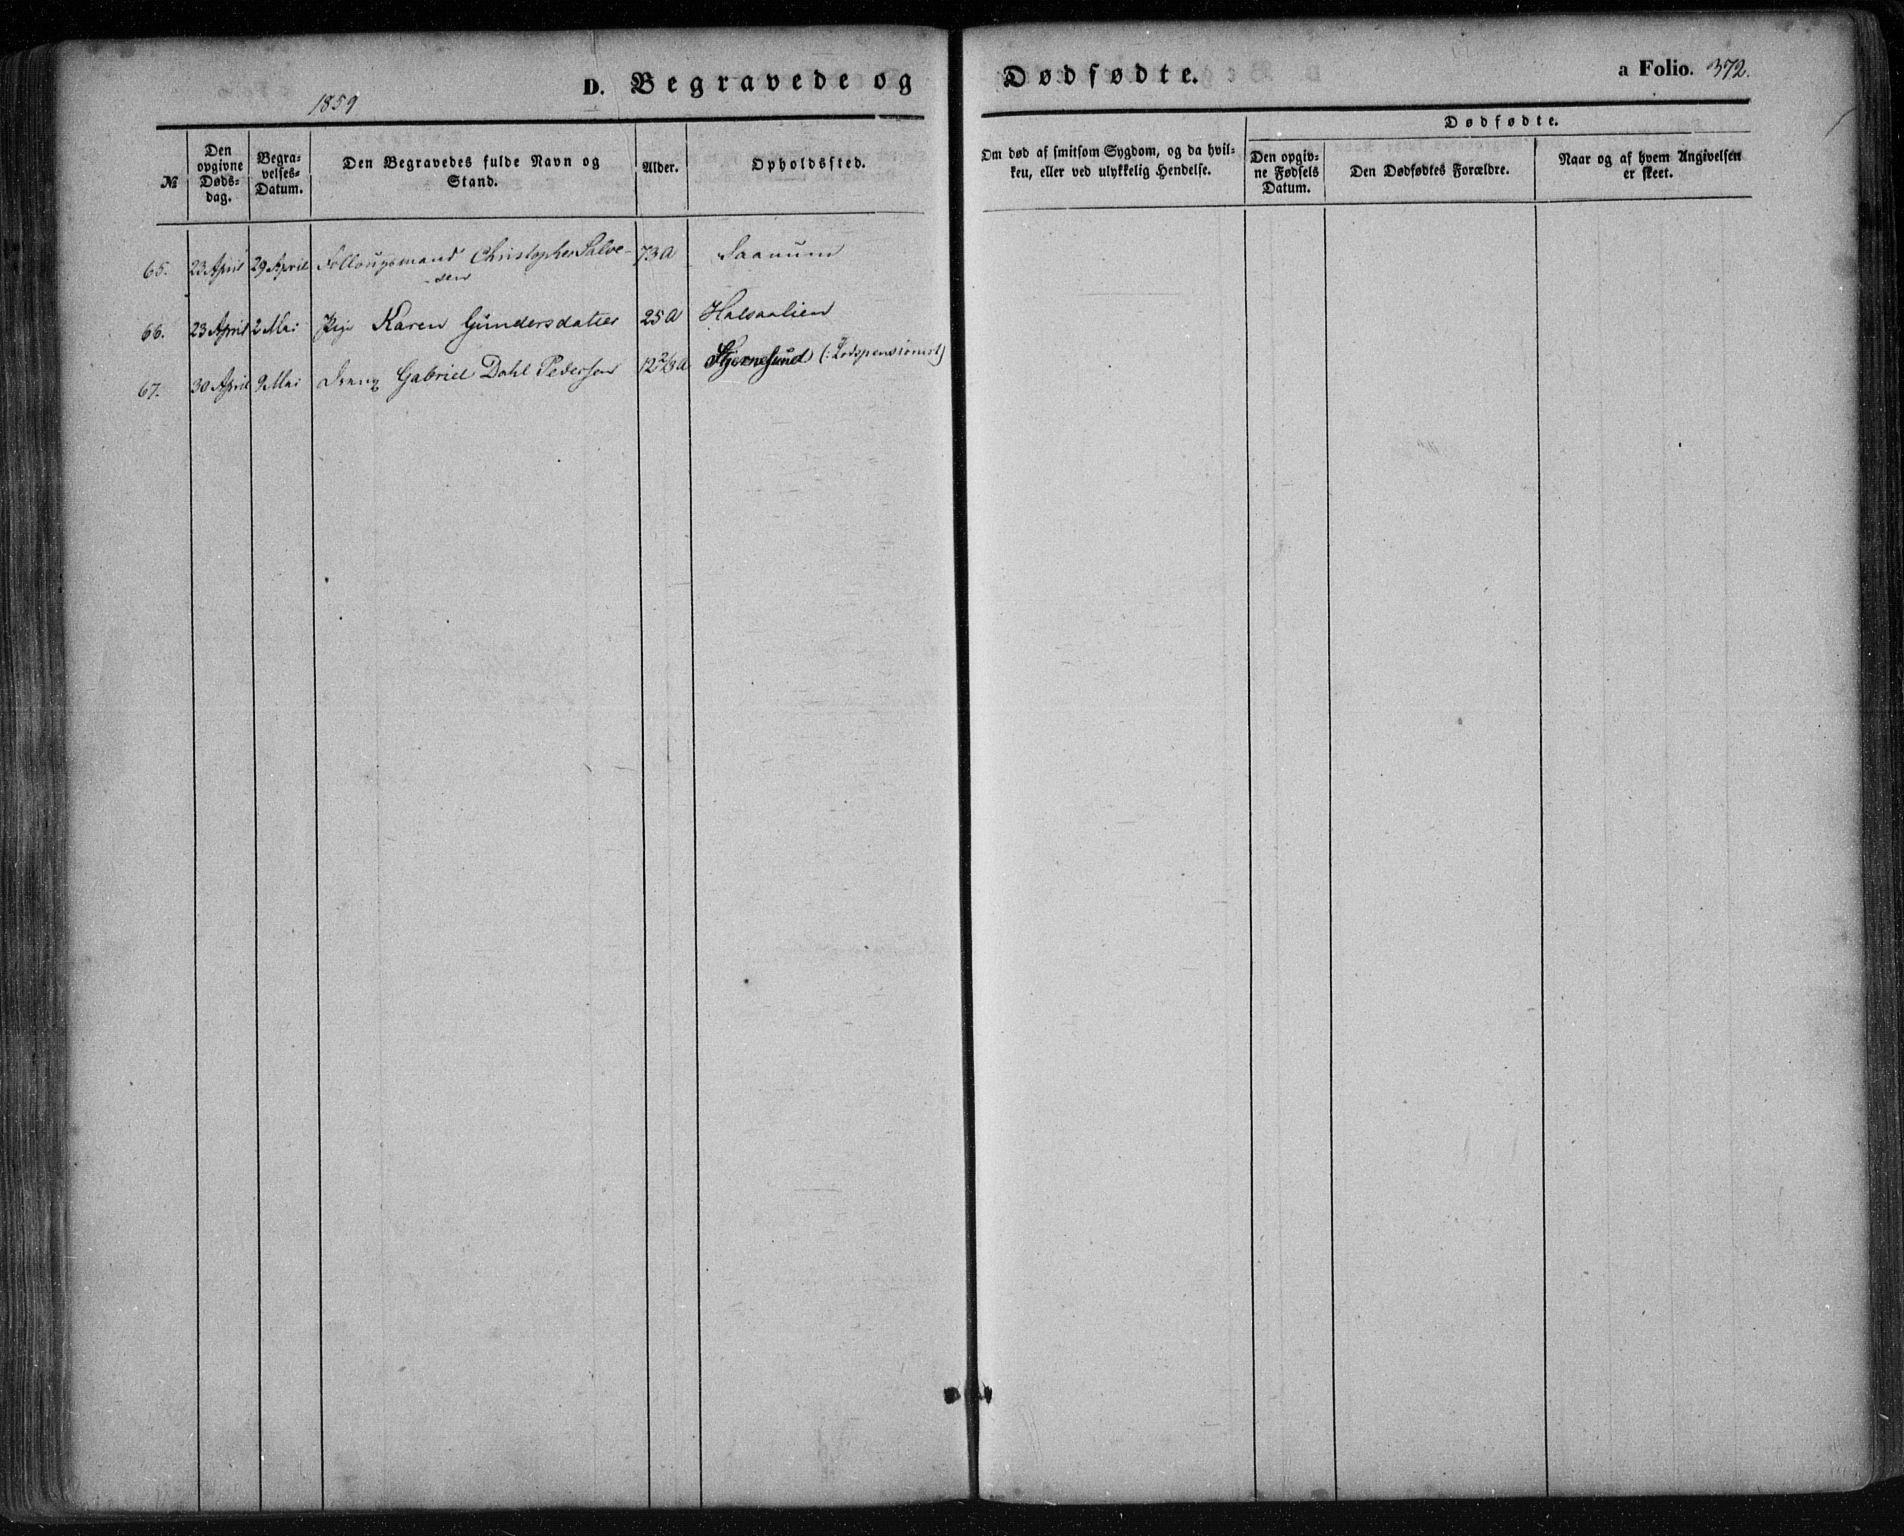 D. Begravede og Dødfødte.
a Folio. 372.
1859
Dødfødte.
№
Den opgivne Døds-dag.
Begra-velses-Datum.
Den Begravedes fulde Navn og Stand.
Alder.
Opholdssted.
Om død af smitsom Sygdom, og da hvil-ken, eller ved ulykkelig Hendelse.
Den opgiv-ne Fødsels Datum.
Den Dødfødtes Forældre.
Naar og af hvem Angivelsen er skeet.
65. 23 April 29 April Follougsmand Christopher Salve- 73 A Saanum
sen
66. 23 April 2 Mai Pige Karen Gundersdatter 25 A Halsaalien
67. 30 April 9 Mai Dreng Gabriel Dahl Pedersen 12 2/3 A Stjernesund (: Lodspensionert)